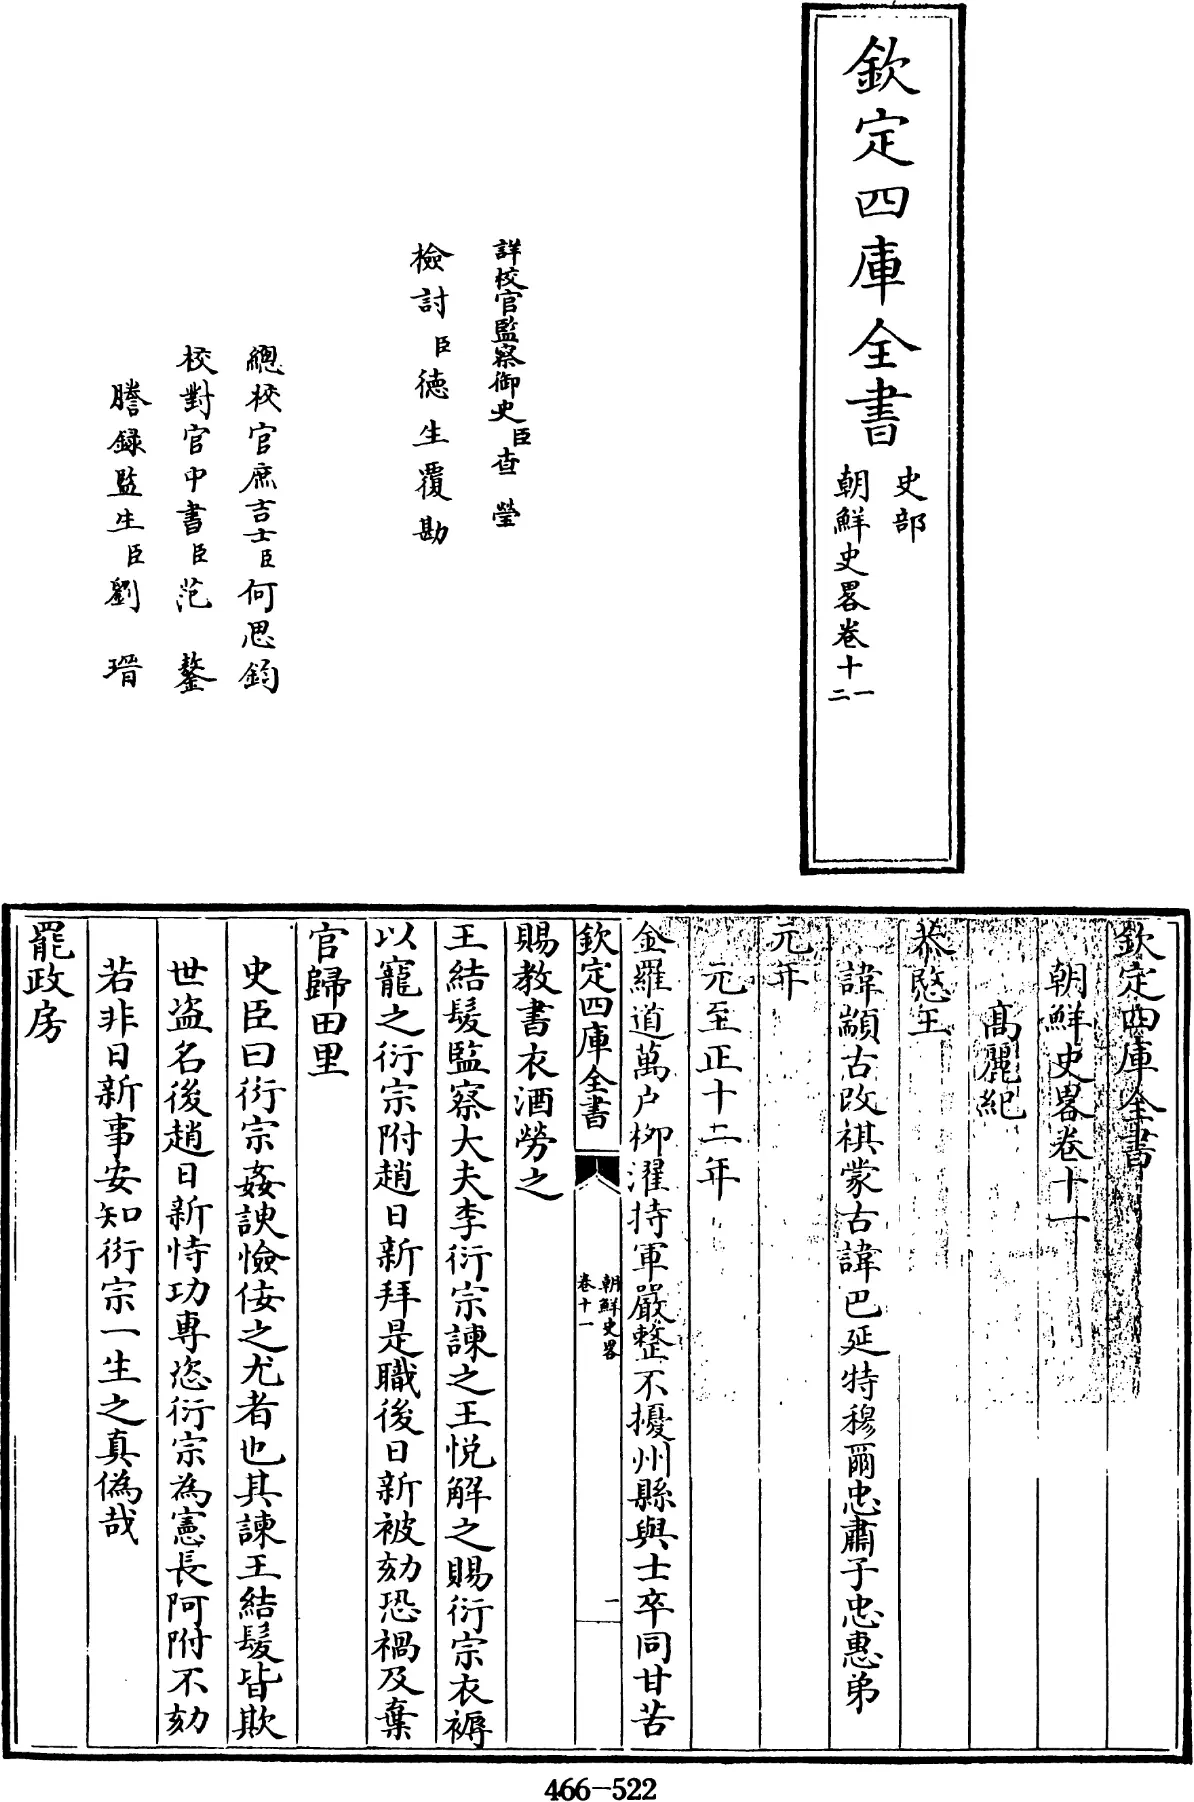 欽定四庫全書
史部
朝鮮史畧卷十一
二
詳校官監察御史臣查瑩
檢討臣德生覆勘
總校官庶吉士臣何思鈞
校對官中書臣范鏊
謄録監生臣劉瑨
欽定四庫全書
朝鮮史畧卷十一
高麗紀
恭愍王
諱顓古改祺蒙古諱巴延特穆爾忠肅子忠惠弟
元年
元至正十二年
金羅道萬户栁濯持軍嚴整不擾州縣與士卒同甘苦
欽定四庫全書
朝鮮史畧
卷十一
一
賜教書衣酒勞之
王結髮監察大夫李衍宗諫之王悦解之賜衍宗衣褥
以寵之衍宗附趙日新拜是職後日新被劾恐禍及棄
官歸田里
史臣曰衍宗姦諛憸佞之尤者也其諫王結髮皆欺
世盜名後趙日新恃功專恣衍宗為憲長阿附不劾
若非日新事安知衍宗一生之真偽哉
罷政房
466-522